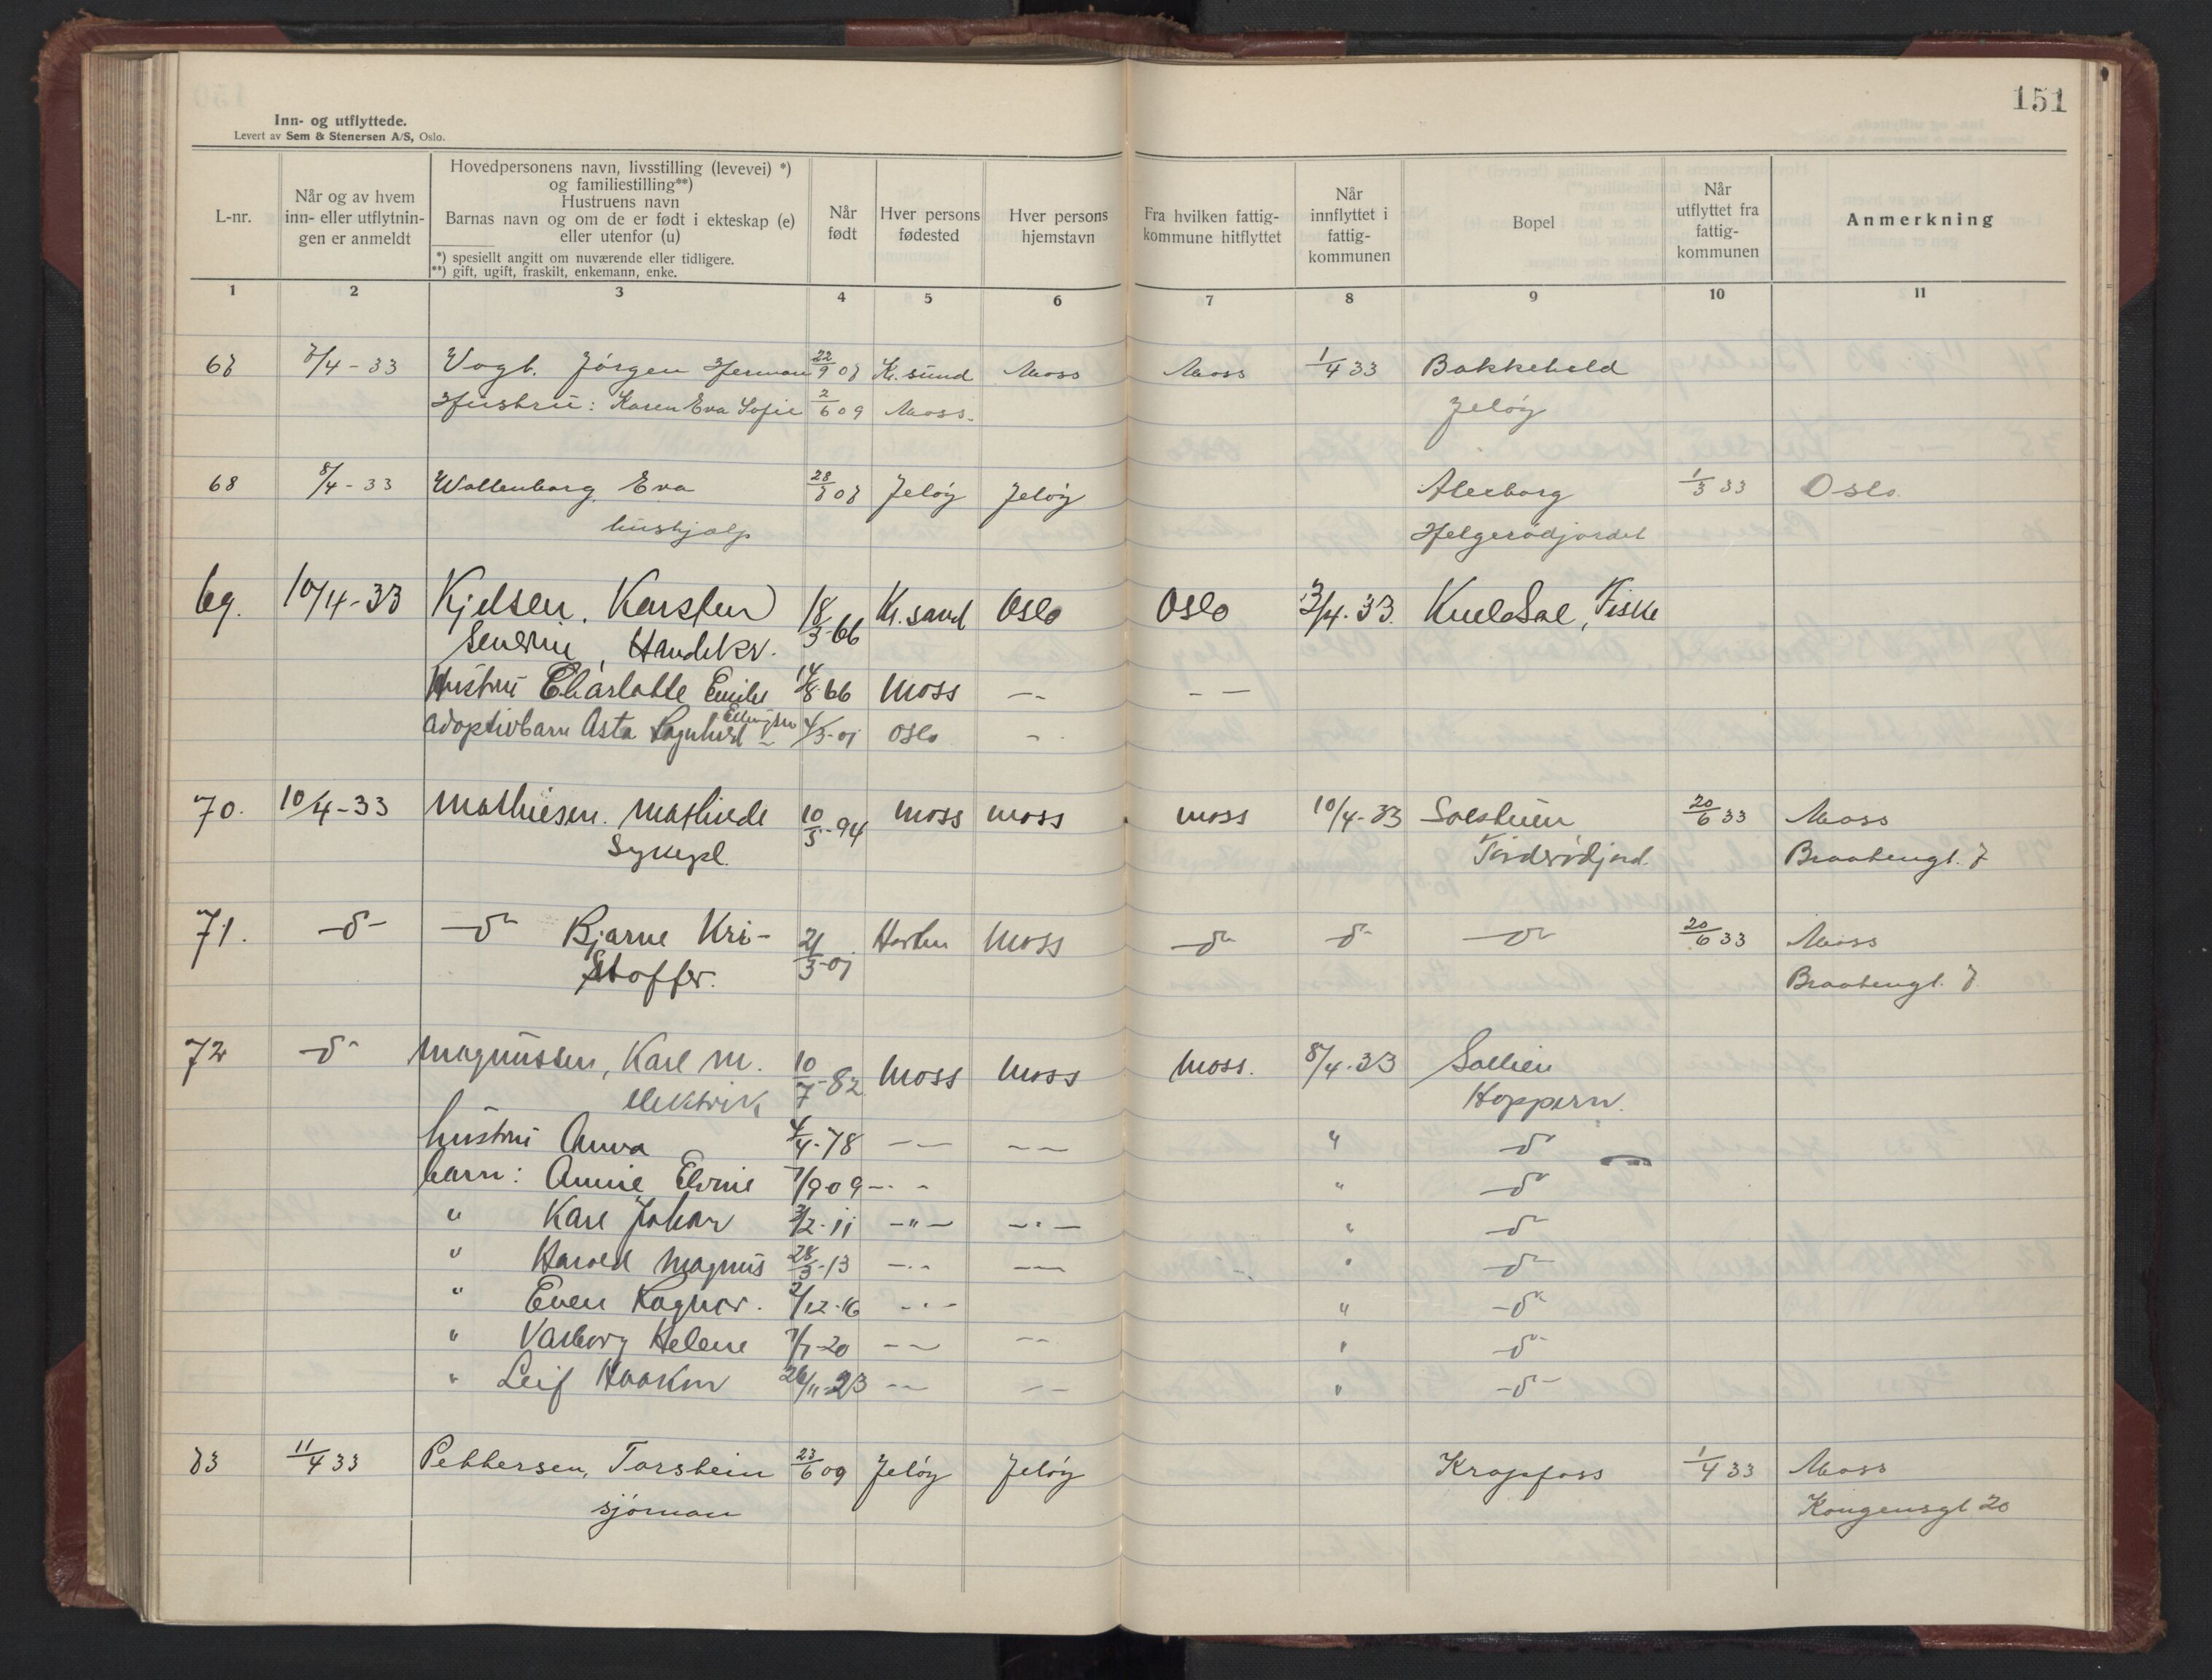 151
Inn- og utflyttede.
Levert av Sem & Stenersen A/S, Oslo.
L-nr.
Når og av hvem
inn- eller utflytnin-
gen er anmeldt
Hovedpersonens navn, livsstilling (levevei) *)
og familiestilling**)
Hustruens navn
Barnas navn og om de er født i ekteskap (e)
eller utenfor (u)
*) spesiellt angitt om nuværende eller tidligere.
**) gift, ugift, fraskilt, enkemann, enke.
Når
født
Hver persons
fødested
Hver persons
hjemstavn
Fra hvilken fattig-
kommune hitflyttet
Når
innflyttet i
fattig-
kommunen
Bopel
Når
utflyttet fra
fattig-
kommunen
Anmerkning
1 2 3 4 5 6 7 8 9 10 11
67 7/4-33 Vogt. Jørgen Herman 22/9 07 Kr.sund Moss Moss 1/4 33 Bakkeheld
Hustru: Karen Eva Sofie 2/6 09 Moss. Jeløy
68 8/4-33 Wallenborg Eva 28/7 07 Jeløy Jeløy Alerborg 1/3 33 Oslo.
hushjælp Helgerødjordet
69. 10/4-33 Kjelsen, Karsten 18/3-66 Kr.sand Oslo Oslo 3/4-33. Fiske
Severin, Handelsr.
Hustru Charlotte Emilie 14/8-66 Moss -- --
Adoptivbarn Asta Ragnhild Ellingsen 4/3-01 Oslo -
70. 10/4-33 Mathiesen. Mathilde 10/5-94 Moss Moss Moss 10/4-33 Solstuen 20/6 33 Moss
Sykepl. Tindrødjord. Braatengt. 7
71. -d- -d- Bjarne Kri- 21/3-01 Horten Moss -d- -d- -d- 20/6 33 Moss
stoffer. Braatengt. 7
72 -d- Magnussen, Karl M. 10/7-82 Moss Moss Moss. 8/4-33 Sollien
elektrik, Hoppern.
hustru Anna 4/4-78 -- -- " -d-
barn: Annie Elvine 7/9-09 -"- " -d-
" Karl Johan 3/2-11 -"- -"- " -d-
" Harald Magnus 28/3-13 -"- -- " -d-
" Even Ragnar. 2/12-16 -"- " -d-
" Valborg Helene 7/7-20 -- -- " -d-
" Leif Haakon 26/11-23 -- -- " -d-
73 11/4 33 Pettersen, Torstein 23/6 09 Jeløy Jeløy Krapfoss 1/4 33 Moss
sjøman Kongensgt 20